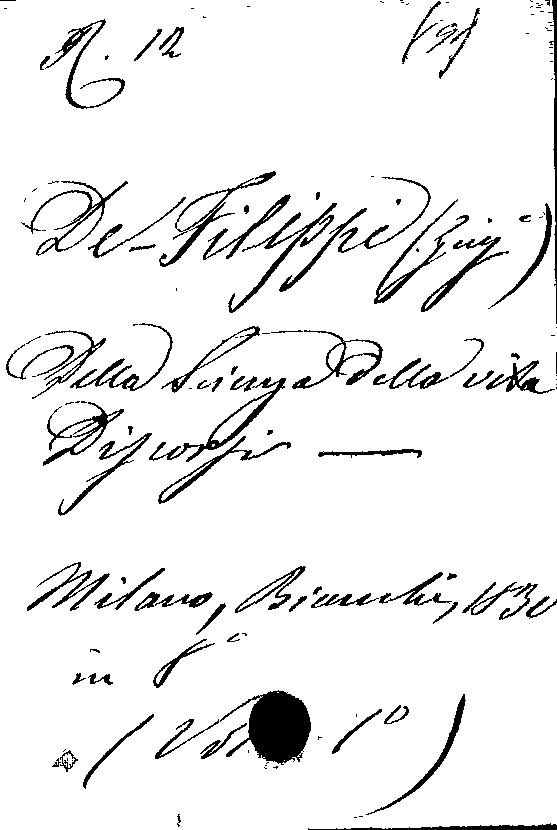 R. 12
De-Filippi (Giuº)
Della Scienza della vita
Discorsi —
Milano, Bianchi, 1830
in 8º
(Vol. 1º)